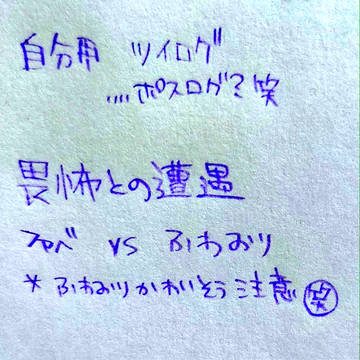 自分用 ツイログ
....ポスログ?笑
畏怖との遭遇
vs ふわおり
*ふわおりかわいそう注意 笑